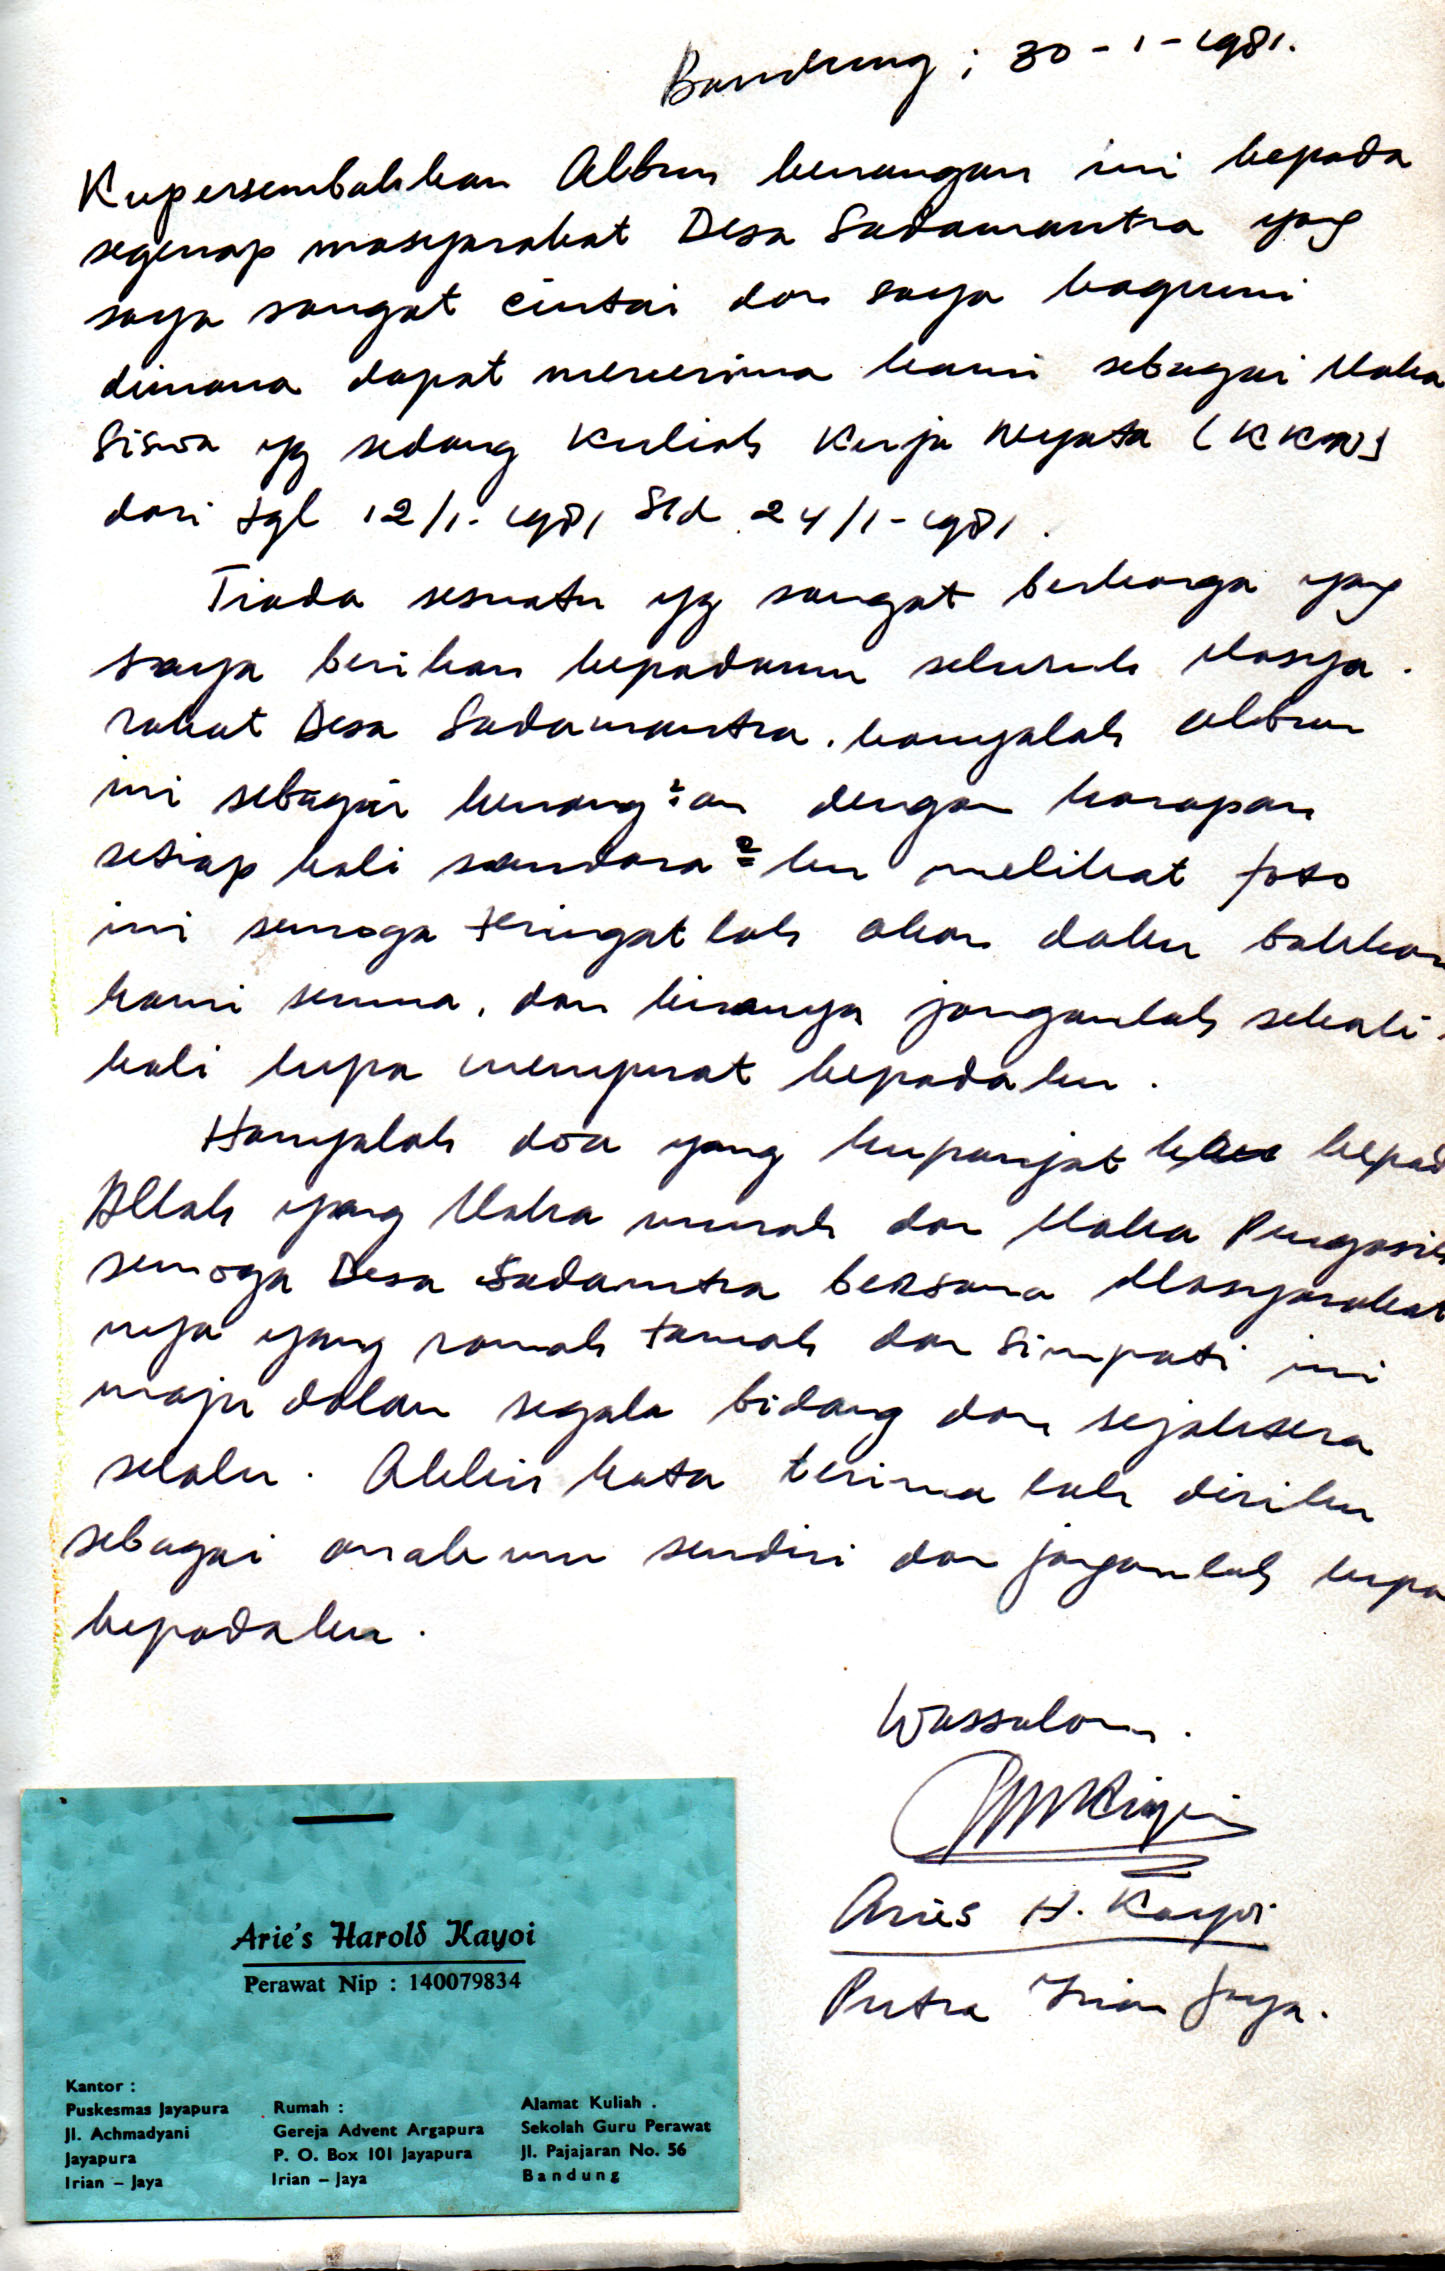 Bandung ; 30 - 1 - 1981.
Kupersembahkan Album kenangan ini kepada
segenap masyarakat Desa Sadamantra yang
saya sangat cintai dan saya kagumi
dimana dapat menerima kami sebagai Maha
Siswa yg sedang Kuliah Kerja Nyata (KKN)
dari tgl 12/1-1981 S/d 24/1-1981.
Tiada sesuatu yg sangat berharga yang
saya berikan kepadamu seluruh Masya-
rakat Desa Sadamantra. hanyalah album
ini sebagai kenang²an dengan harapan
setiap kali saudara²ku melihat foto
ini semoga teringatlah akan daku bahkan
kami semua, dan kiranya janganlah sekali-
kali lupa menyurat kepadaku.
Hanyalah doa yang kupanjat kepad
Allah yang Maha murah dan Maha Pengasih
semoga Desa Sadamtra bersama Masyarakat
nya yang ramah tamah dan simpati ini
maju dalam segala bidang dan sejahtera
selalu. Akhir kata terima lah diriku
sebagai anakmu sendiri dan janganlah lupa
kepadaku.
Wassalam.
Aries H. Kayoi
Putra Irian Jaya.
Arie's Harold Kayoi
Perawat Nip : 140079834
Kantor :
Puskesmas Jayapura
Jl. Achmadyani
Jayapura
Irian – Jaya
Rumah :
Gereja Advent Argapura
P. O. Box 101 Jayapura
Irian – Jaya
Alamat Kuliah .
Sekolah Guru Perawat
Jl. Pajajaran No. 56
Bandung